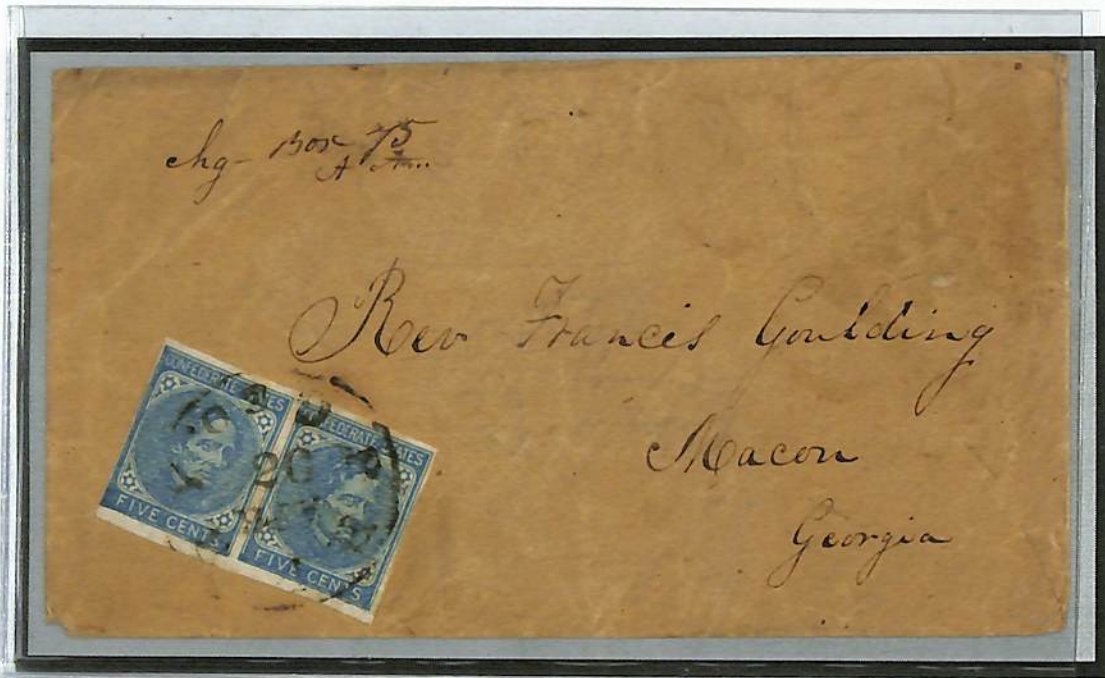 chg Box 75
Rev Francis Goulding
Macon
Georgia
CONFEDERATE STATES
FIVE CENTS
CONFEDERATE STATES
FIVE CENTS
20